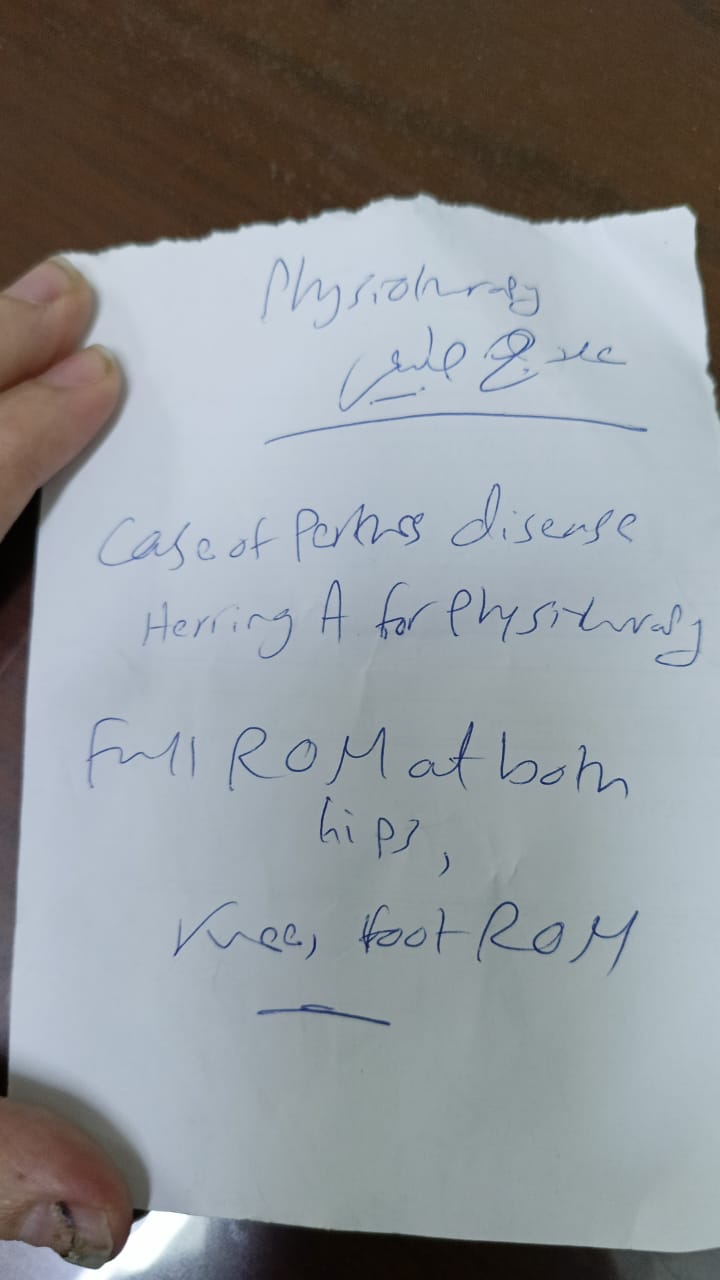 Physiotherapy
علاج طبيعي
Case of Perthes disease
Herring A for Physiotherapy
Full ROM at both
hips,
Knee, foot ROM